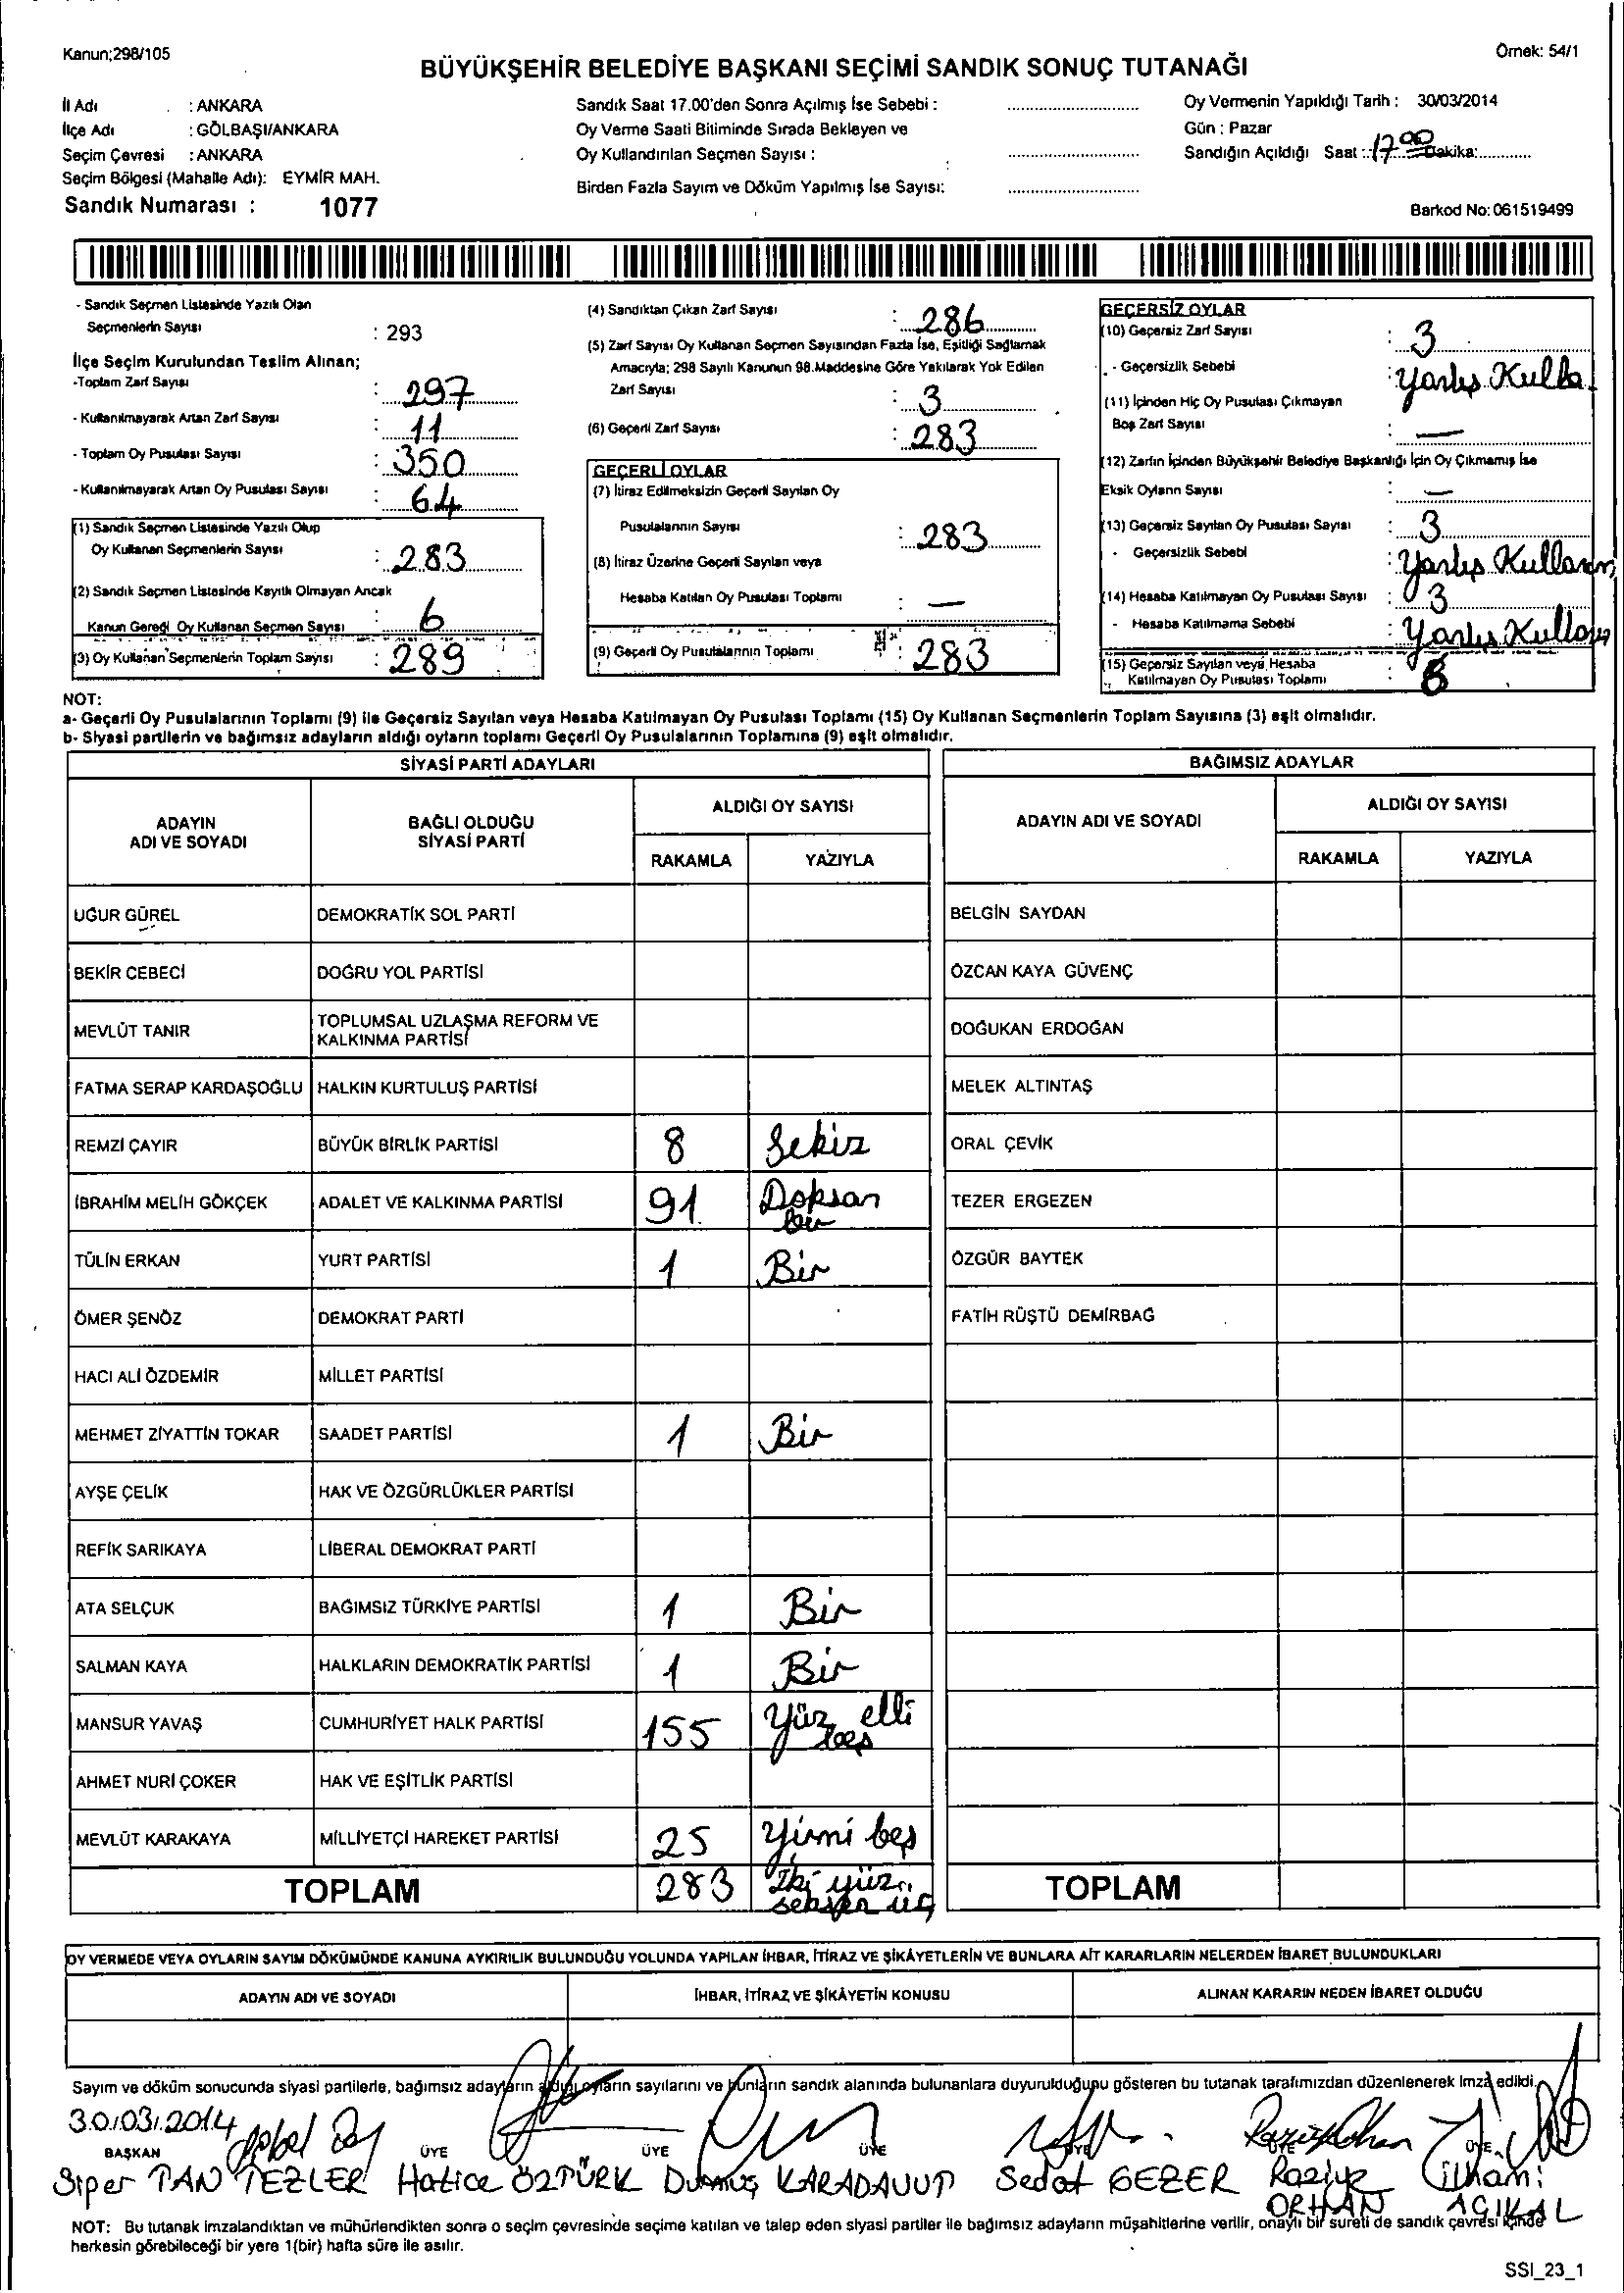 Kanun;298/105
Örnek: 54/1
BÜYÜKŞEHİR BELEDİYE BAŞKANI SEÇİMİ SANDIK SONUÇ TUTANAĞI
İl Adı : ANKARA
İlçe Adı : GÖLBAŞI/ANKARA
Seçim Çevresi : ANKARA
Seçim Bölgesi (Mahalle Adı): EYMİR MAH.
Sandık Numarası : 1077
Sandık Saat 17.00'den Sonra Açılmış İse Sebebi :
Oy Verme Saati Bitiminde Sırada Bekleyen ve
Oy Kullandırılan Seçmen Sayısı :
Birden Fazla Sayım ve Döküm Yapılmış İse Sayısı:
Oy Vermenin Yapıldığı Tarih : 30/03/2014
Gün : Pazar
Sandığın Açıldığı Saat : 17 00 Dakika:
Barkod No: 061519499
- Sandık Seçmen Listesinde Yazılı Olan
Seçmenlerin Sayısı : 293
İlçe Seçim Kurulundan Teslim Alınan;
-Toplam Zarf Sayısı : 297
- Kullanılmayarak Artan Zarf Sayısı : 11
- Toplam Oy Pusulası Sayısı : 350
- Kullanılmayarak Artan Oy Pusulası Sayısı : 64
(1) Sandık Seçmen Listesinde Yazılı Olup
Oy Kullanan Seçmenlerin Sayısı : 283
(2) Sandık Seçmen Listesinde Kayıtlı Olmayan Ancak
Kanun Gereği Oy Kullanan Seçmen Sayısı : 6
(3) Oy Kullanan Seçmenlerin Toplam Sayısı : 289
(4) Sandıktan Çıkan Zarf Sayısı : 286
(5) Zarf Sayısı Oy Kullanan Seçmen Sayısından Fazla İse, Eşitliği Sağlamak
Amacıyla; 298 Sayılı Kanunun 98.Maddesine Göre Yakılarak Yok Edilen
Zarf Sayısı : 3
(6) Geçerli Zarf Sayısı : 283
GEÇERLİ OYLAR
(7) İtiraz Edilmeksizin Geçerli Sayılan Oy
Pusulalarının Sayısı : 283
(8) İtiraz Üzerine Geçerli Sayılan veya
Hesaba Katılan Oy Pusulası Toplamı : —
(9) Geçerli Oy Pusulalarının Toplamı : 283
GEÇERSİZ OYLAR
(10) Geçersiz Zarf Sayısı : 3
- Geçersizlik Sebebi : Yanlış Kulla.
(11) İçinden Hiç Oy Pusulası Çıkmayan
Boş Zarf Sayısı : —
(12) Zarfın İçinden Büyükşehir Belediye Başkanlığı İçin Oy Çıkmamış İse
Eksik Oyların Sayısı : —
(13) Geçersiz Sayılan Oy Pusulası Sayısı : 3
- Geçersizlik Sebebi : Yanlış Kullanım
(14) Hesaba Katılmayan Oy Pusulası Sayısı : 3
- Hesaba Katılmama Sebebi : Yanlış
(15) Geçersiz Sayılan veya Hesaba
Katılmayan Oy Pusulası Toplamı :
NOT:
a- Geçerli Oy Pusulalarının Toplamı (9) ile Geçersiz Sayılan veya Hesaba Katılmayan Oy Pusulası Toplamı (15) Oy Kullanan Seçmenlerin Toplam Sayısına (3) eşit olmalıdır.
b- Siyasi partilerin ve bağımsız adayların aldığı oyların toplamı Geçerli Oy Pusulalarının Toplamına (9) eşit olmalıdır.
SİYASİ PARTİ ADAYLARI
ADAYIN ADI VE SOYADI BAĞLI OLDUĞU SİYASİ PARTİ ALDIĞI OY SAYISI
RAKAMLA YAZIYLA
UĞUR GÜREL DEMOKRATİK SOL PARTİ
BEKİR CEBECİ DOĞRU YOL PARTİSİ
MEVLÜT TANIR TOPLUMSAL UZLAŞMA REFORM VE KALKINMA PARTİSİ
FATMA SERAP KARDAŞOĞLU HALKIN KURTULUŞ PARTİSİ
REMZİ ÇAYIR BÜYÜK BİRLİK PARTİSİ 8 Sekiz
İBRAHİM MELİH GÖKÇEK ADALET VE KALKINMA PARTİSİ 91 Doksan bir
TÜLİN ERKAN YURT PARTİSİ 1 Bir
ÖMER ŞENÖZ DEMOKRAT PARTİ
HACI ALİ ÖZDEMİR MİLLET PARTİSİ
MEHMET ZİYATTİN TOKAR SAADET PARTİSİ 1 Bir
AYŞE ÇELİK HAK VE ÖZGÜRLÜKLER PARTİSİ
REFİK SARIKAYA LİBERAL DEMOKRAT PARTİ
ATA SELÇUK BAĞIMSIZ TÜRKİYE PARTİSİ 1 Bir
SALMAN KAYA HALKLARIN DEMOKRATİK PARTİSİ 1 Bir
MANSUR YAVAŞ CUMHURİYET HALK PARTİSİ 155 Yüz elli beş
AHMET NURİ ÇOKER HAK VE EŞİTLİK PARTİSİ
MEVLÜT KARAKAYA MİLLİYETÇİ HAREKET PARTİSİ 25 Yirmi beş
TOPLAM 283 İki yüz seksen üç
BAĞIMSIZ ADAYLAR
ADAYIN ADI VE SOYADI ALDIĞI OY SAYISI
RAKAMLA YAZIYLA
BELGİN SAYDAN
ÖZCAN KAYA GÜVENÇ
DOĞUKAN ERDOĞAN
MELEK ALTINTAŞ
ORAL ÇEVİK
TEZER ERGEZEN
ÖZGÜR BAYTEK
FATİH RÜŞTÜ DEMİRBAĞ
TOPLAM
OY VERMEDE VEYA OYLARIN SAYIM DÖKÜMÜNDE KANUNA AYKIRILIK BULUNDUĞU YOLUNDA YAPILAN İHBAR, İTİRAZ VE ŞİKÂYETLERİN VE BUNLARA AİT KARARLARIN NELERDEN İBARET BULUNDUKLARI
ADAYIN ADI VE SOYADI İHBAR, İTİRAZ VE ŞİKÂYETİN KONUSU ALINAN KARARIN NEDEN İBARET OLDUĞU
Sayım ve döküm sonucunda siyasi partilerle, bağımsız adayların aldığı oyların sayılarını ve bunların sandık alanında bulunanlara duyurulduğunu gösteren bu tutanak tarafımızdan düzenlenerek imza edildi.
30.03.2014
BAŞKAN ÜYE ÜYE ÜYE ÜYE ÜYE ÜYE
Siper PAN TEZLER Hatice ÖZTÜRK Durmuş KARADAVUT Sedat GEZER Raziye ORHAN İlhami AÇIKAL
NOT: Bu tutanak imzalandıktan ve mühürlendikten sonra o seçim çevresinde seçime katılan ve talep eden siyasi partiler ile bağımsız adayların müşahitlerine verilir, onaylı bir sureti de sandık çevresi içinde
herkesin görebileceği bir yere 1(bir) hafta süre ile asılır.
SSI_23_1